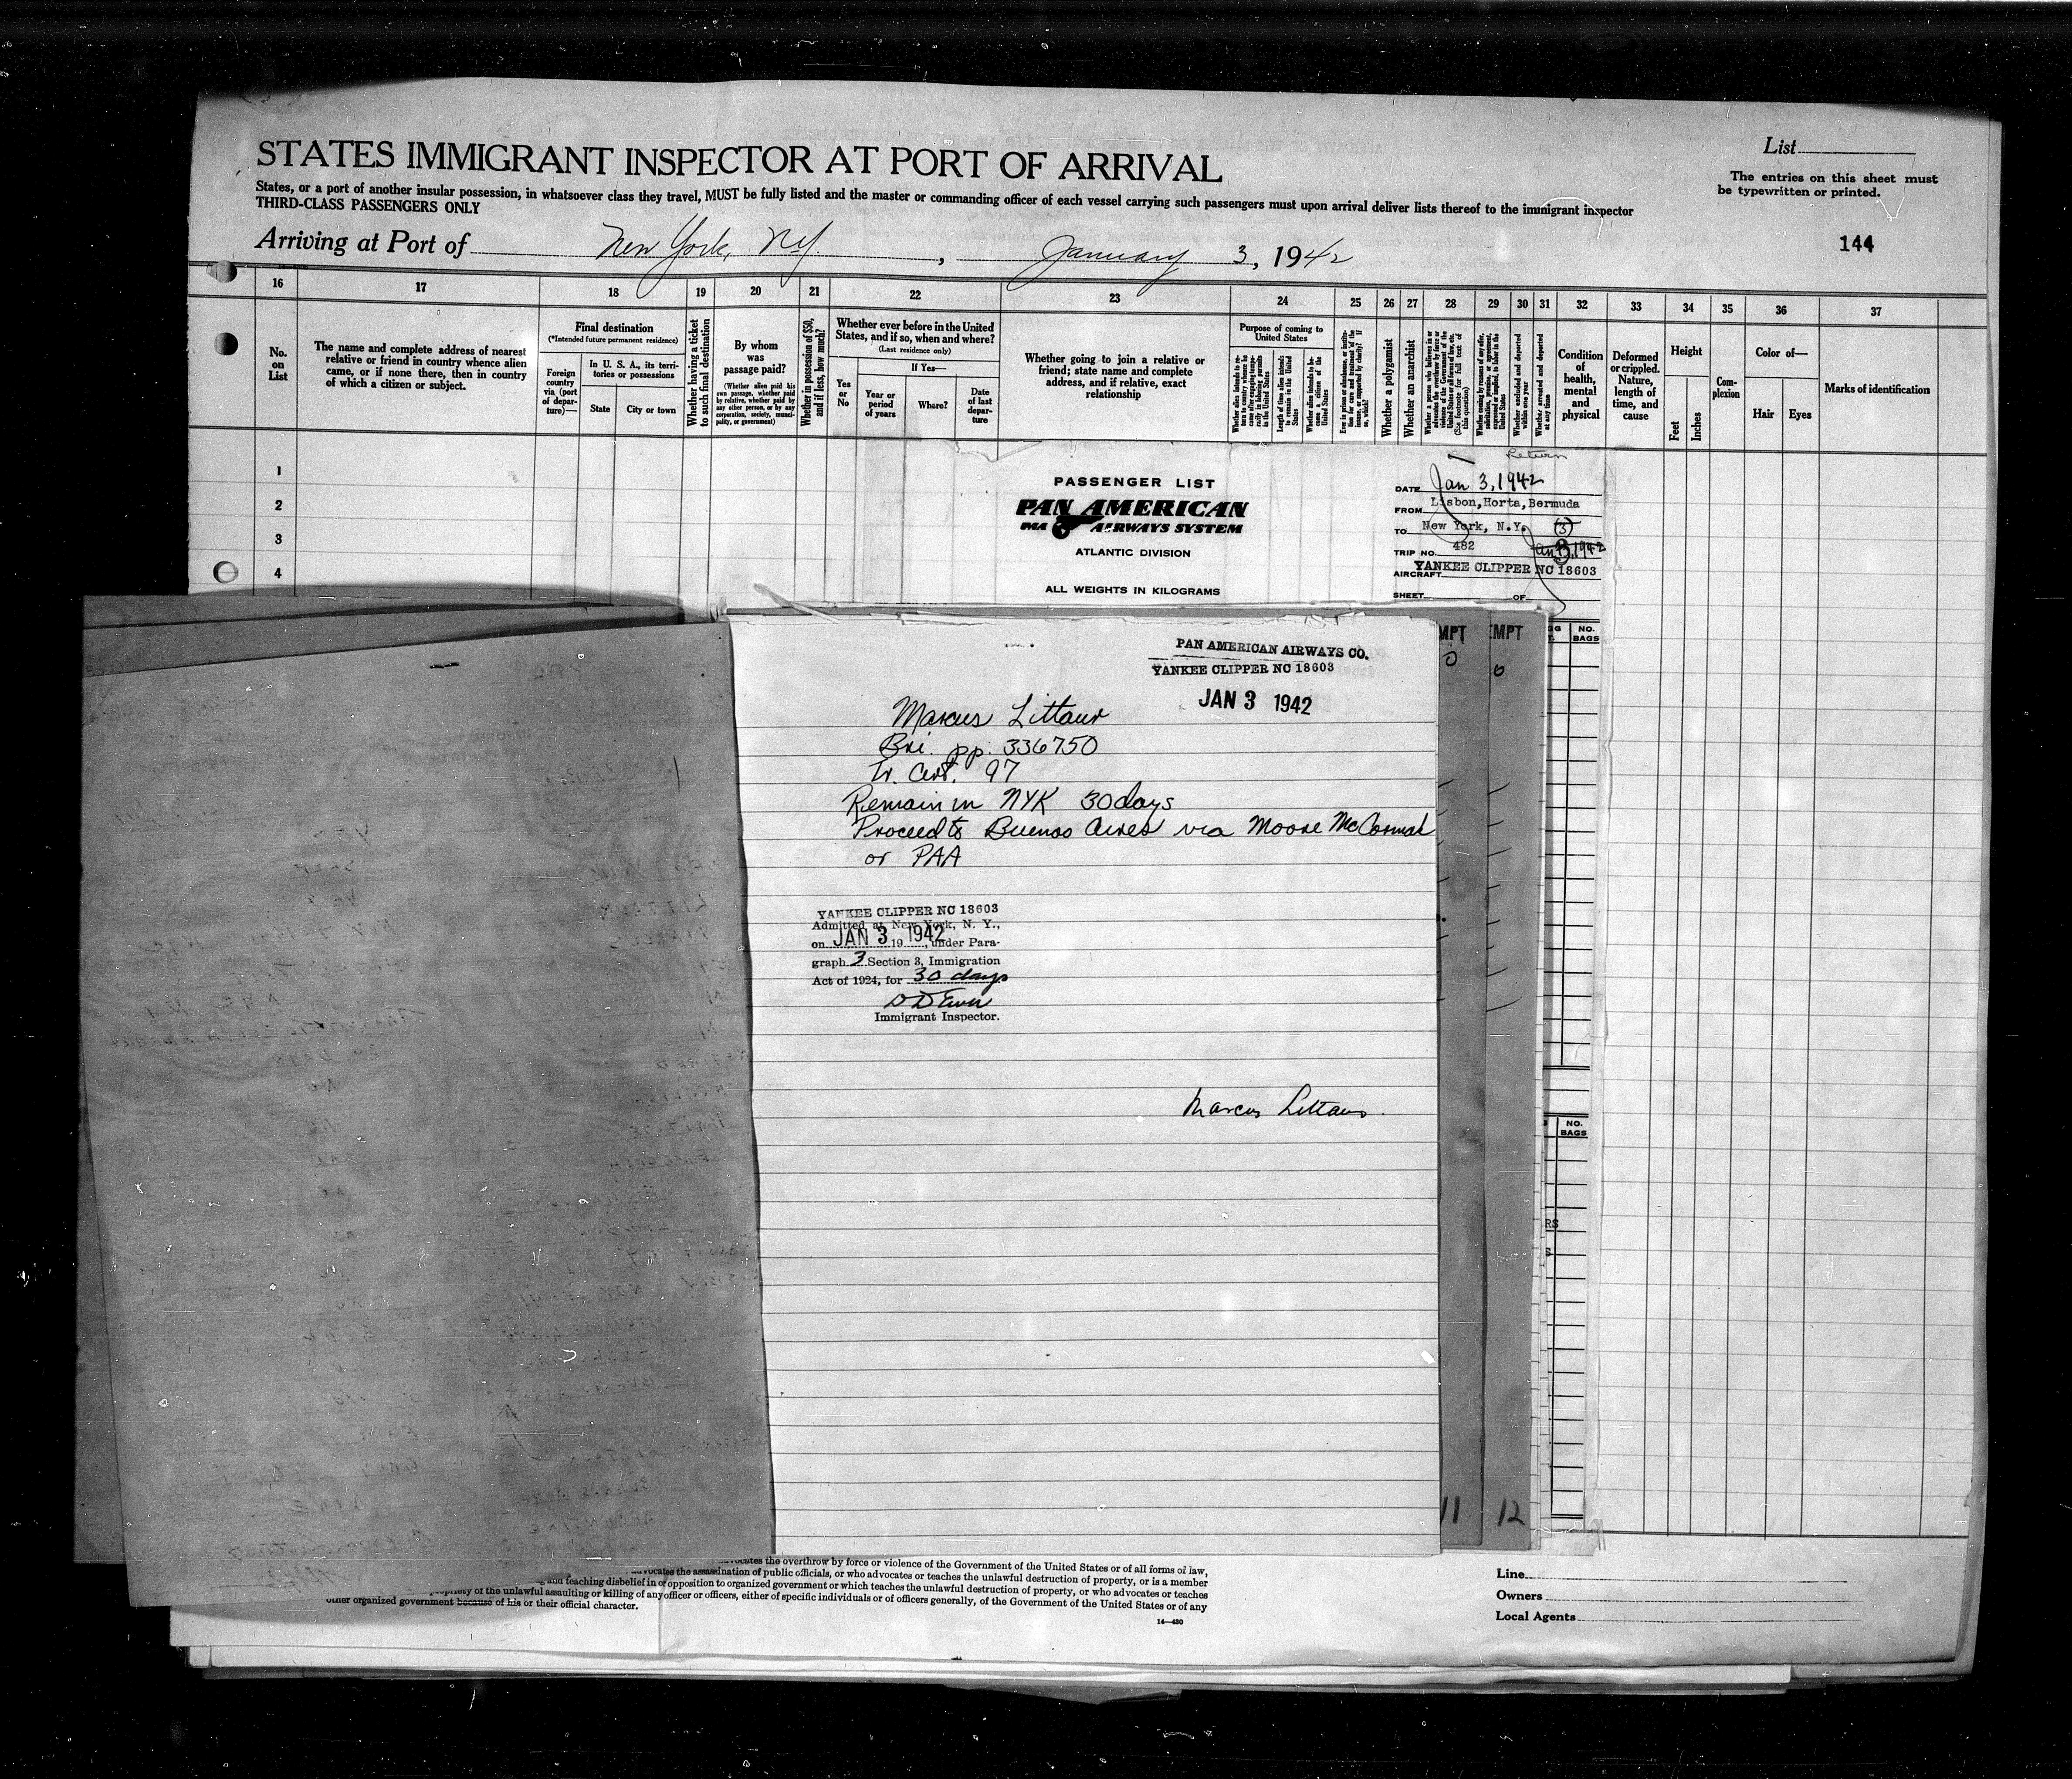 STATES IMMIGRANT INSPECTOR AT PORT OF ARRIVAL
List
The entries on this sheet must
be typewritten or printed.
States, or a port of another insular possession, in whatsoever class they travel, MUST be fully listed and the master or commanding officer of each vessel carrying such passengers must upon arrival deliver lists thereof to the immigrant inspector
THIRD-CLASS PASSENGERS ONLY
Arriving at Port of New York, NY. , January 3, 1942
144
16 17 18 19 20 21 22 23 24 25 26 27 28 29 30 31 32 33 34 35 36 37
No.
on
List
The name and complete address of nearest
relative or friend in country whence alien
came, or if none there, then in country
of which a citizen or subject.
Final destination
(*Intended future permanent residence)
Foreign
country
via (port
of depar-
ture)—
In U. S. A., its terri-
tories or possessions
State
City or town
Whether having a ticket
to such final destination
By whom
was
passage paid?
(Whether alien paid his
own passage, whether paid
by relative, whether paid by
any other person, or by any
corporation, society, munici-
pality, or government)
Whether in possession of $50,
and if less, how much?
Whether ever before in the United
States, and if so, when and where?
(Last residence only)
If Yes—
Yes
or
No
Year or
period
of years
Where?
Date
of last
depar-
ture
Whether going to join a relative or
friend; state name and complete
address, and if relative, exact
relationship
Purpose of coming to
United States
Whether a polygamist
Whether an anarchist
Condition
of
health,
mental
and
physical
Deformed
or crippled.
Nature,
length of
time, and
cause
Height
Feet
Inches
Com-
plexion
Color of—
Hair
Eyes
Marks of identification
1
2
3
4
PASSENGER LIST
PAN AMERICAN
PAA AIRWAYS SYSTEM
ATLANTIC DIVISION
ALL WEIGHTS IN KILOGRAMS
Return
DATE Jan 3, 1942
FROM Lisbon, Horta, Bermuda
TO New York, N.Y. (3)
TRIP NO. 482
AIRCRAFT YANKEE CLIPPER NC 18603
SHEET OF
MPT EMPT
0 0
NO.
BAGS
PAN AMERICAN AIRWAYS CO.
YANKEE CLIPPER NC 18603
JAN 3 1942
Marcus Littaur
Bri. pp. 336750
Tr. Cert. 97
Remain in NYK 30 days
Proceed to Buenos Aires via Moore McCormak
or PAA
YANKEE CLIPPER NC 18603
Admitted at New York, N. Y.,
on JAN 3 1942 19 , under Para-
graph 3 Section 3, Immigration
Act of 1924, for 30 days
Immigrant Inspector.
Marcus Littaur.
NO.
BAGS
RS
S
11 12
advocates the overthrow by force or violence of the Government of the United States or of all forms of law,
advocates the assassination of public officials, or who advocates or teaches the unlawful destruction of property, or is a member
and teaching disbelief in or opposition to organized government or which teaches the unlawful destruction of property, or who advocates or teaches
propriety of the unlawful assaulting or killing of any officer or officers, either of specific individuals or of officers generally, of the Government of the United States or of any
other organized government because of his or their official character.
14—430
Line
Owners
Local Agents